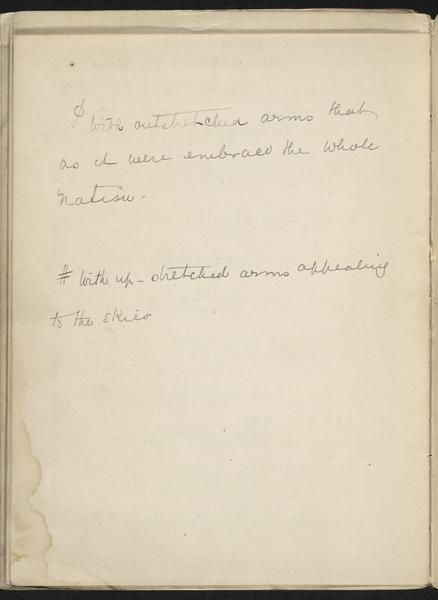 with outstretched arms that
as it were embrace the whole
nation.
# With up-stretched arms appealing
to the skies